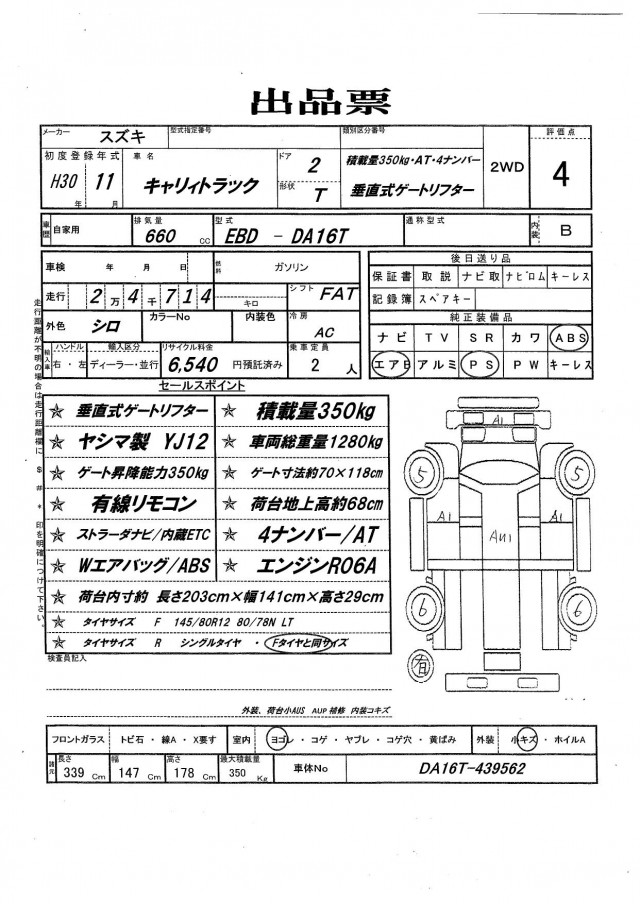 出品票
メーカー スズキ 型式指定番号 類別区分番号 評価点
初度登録年式 車名 ドア 2 積載量350kg・AT・4ナンバー 2WD 4
H30 年 11 月 キャリィトラック 形状 T 垂直式ゲートリフター
車歴 自家用 排気量 660 cc 型式 EBD - DA16T 通称型式 内装 B
車検 年 月 日 燃料 ガソリン
走行 2 万 4 千 7 1 4 キロ シフト FAT
外色 シロ カラーNo 内装色 冷房 AC
輸入車 ハンドル 右・左 輸入区分 ディーラー・並行 リサイクル料金 6,540 円預託済み 乗車定員 2 人
後日送り品
保証書 取説 ナビ取 ナビロム キーレス
記録簿 スペアキー
純正装備品
ナビ TV SR カワ ABS
エアB アルミ PS PW キーレス
走行距離が不明の場合は走行距離欄に $ # * 印を明確につけて下さい。
セールスポイント
☆ 垂直式ゲートリフター ☆ 積載量350kg
☆ ヤシマ製 YJ12 ☆ 車両総重量1280kg
☆ ゲート昇降能力350kg ☆ ゲート寸法約70×118cm
☆ 有線リモコン ☆ 荷台地上高約68cm
☆ ストラーダナビ/内蔵ETC ☆ 4ナンバー/AT
☆ Wエアバッグ/ABS ☆ エンジンR06A
☆ 荷台内寸約 長さ203cm×幅141cm×高さ29cm
☆ タイヤサイズ F 145/80R12 80/78N LT
☆ タイヤサイズ R シングルタイヤ ・ Fタイヤと同サイズ
A1
5 5
A1 AU1 A1
6 6
有
検査員記入
外装、荷台小AUS AUP補修 内装コキズ
フロントガラス トビ石・線A・X要す 室内 ヨゴレ・コゲ・ヤブレ・コゲ穴・黄ばみ 外装 小キズ・ホイルA
諸元 長さ 339 Cm 幅 147 Cm 高さ 178 Cm 最大積載量 350 Kg 車体No DA16T-439562